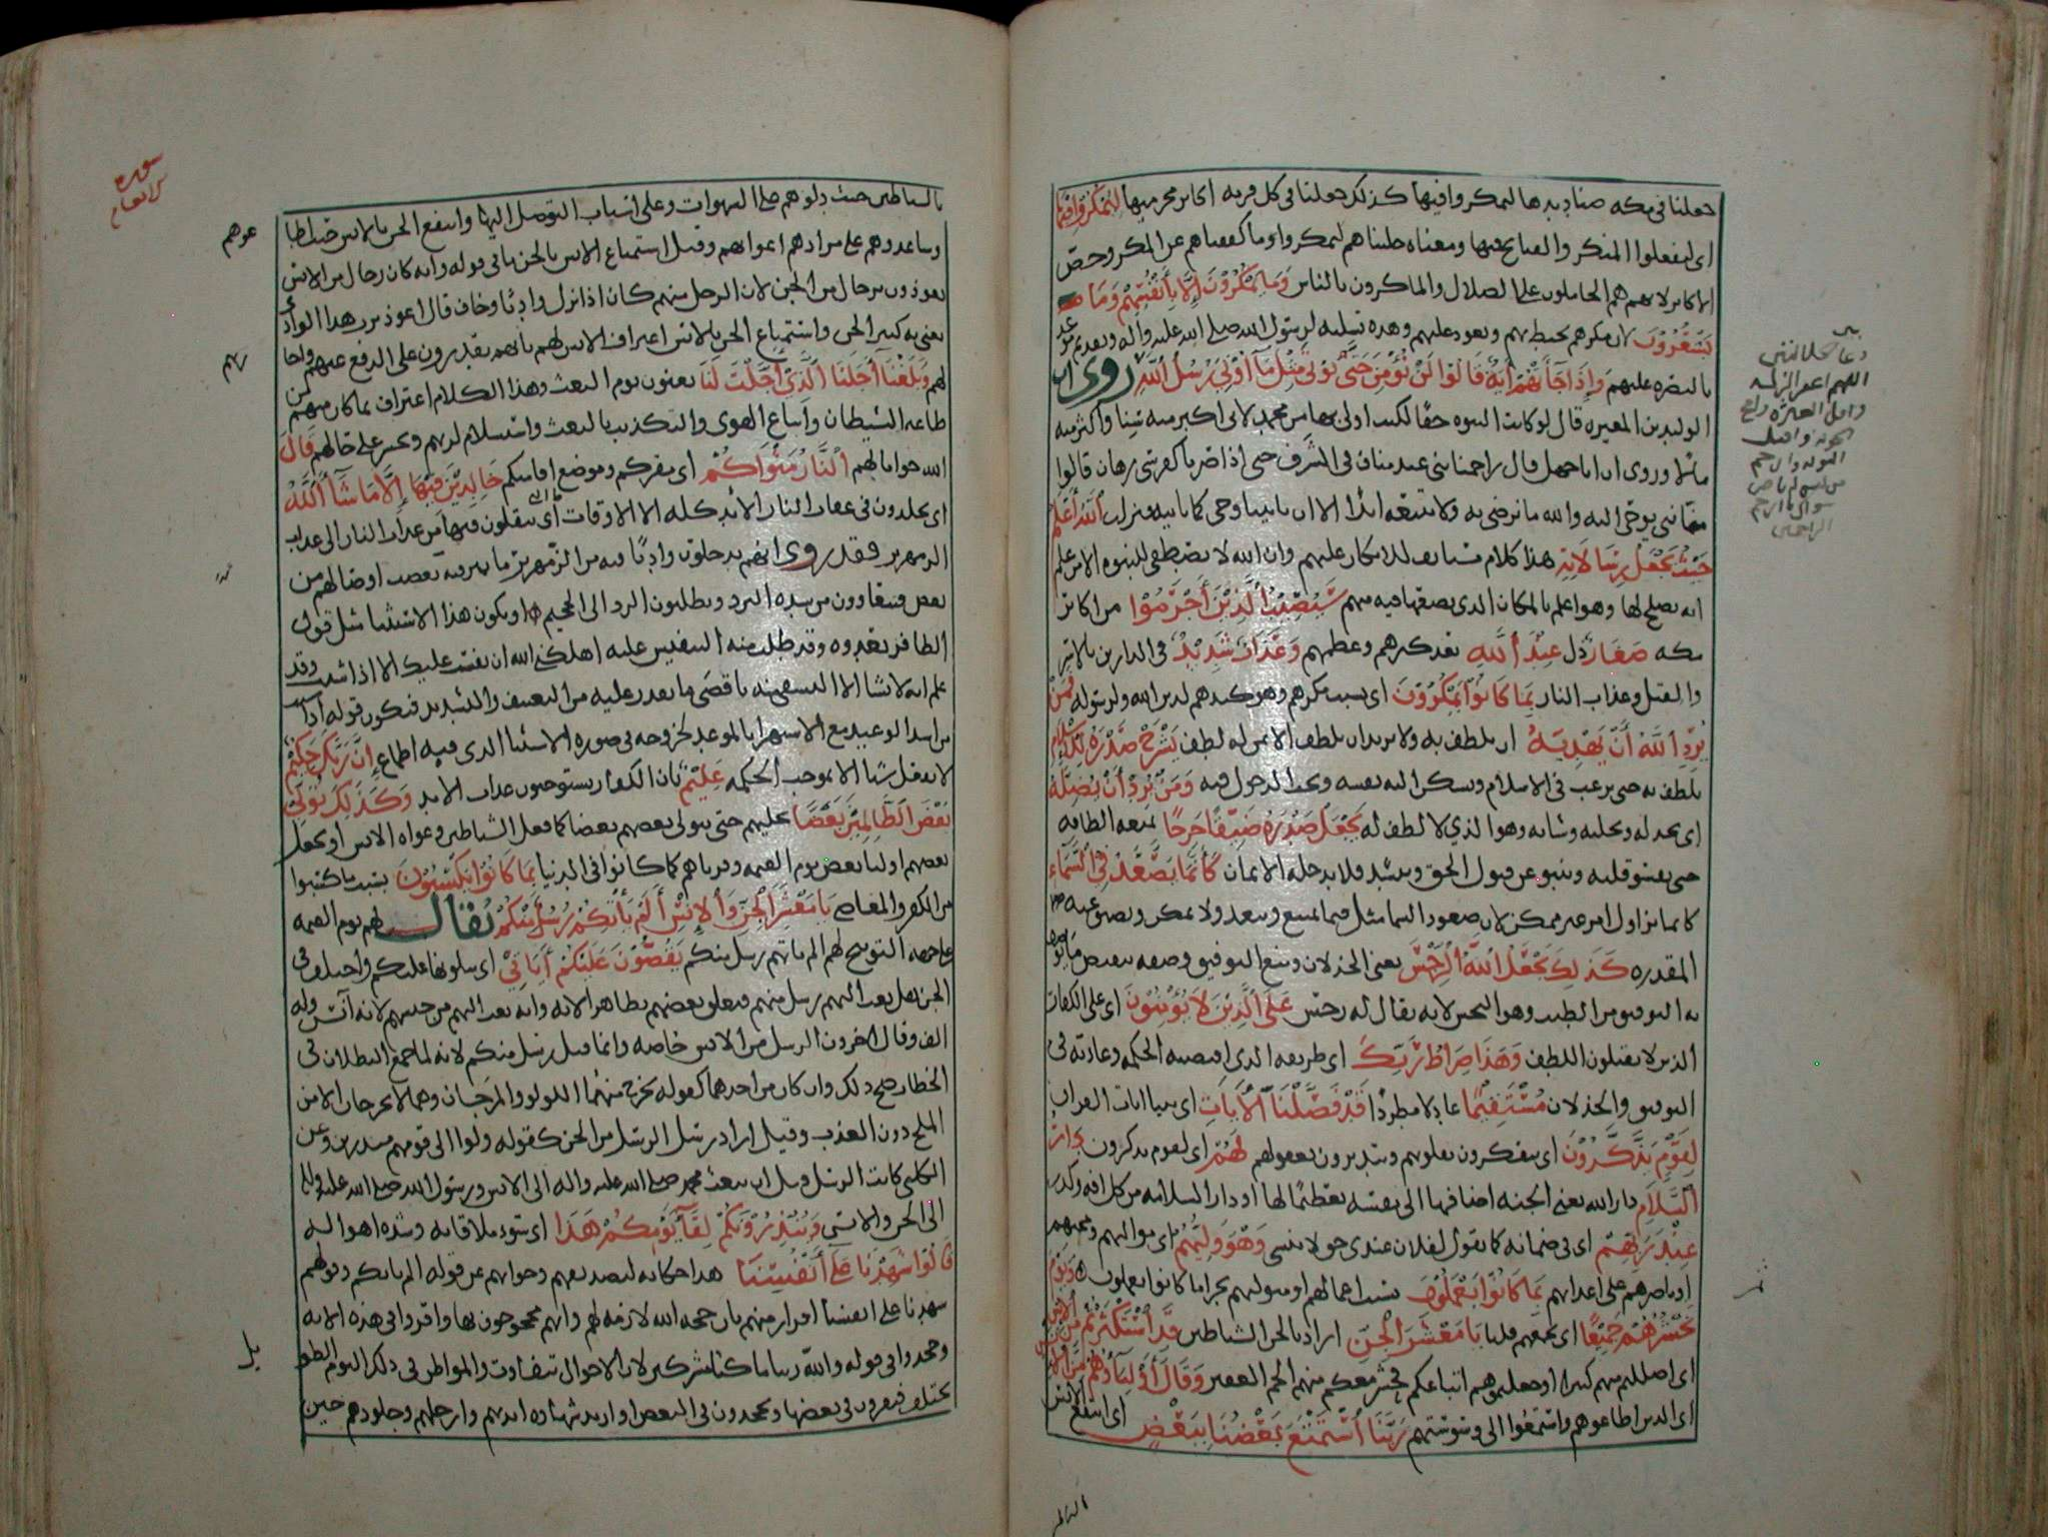 جعلنا في مكه صناديدها ليمكروا فيها كذلك جعلنا في كل قريه اكابر مجرميها ليمكروا فيها
اى ليفعلوا المنكر والقبايح فيها ومعناه خليناهم ليمكروا وما كففناهم عن المكر وخص
الاكابر لانهم هم الحاملون على الضلال والماكرون بالناس وَمَا يَمْكُرُونَ إِلَّا بِأَنْفُسِهِمْ وَمَا
يَشْعُرُونَ لان مكرهم يحيط بهم ويعود عليهم وهذه تسليه لرسول الله صلى الله عليه واله وتقديم موعد
بالنصره عليهم وَإِذَا جَآءَتْهُمْ آيَةٌ قَالُوا لَنْ نُؤْمِنَ حَتَّى نُؤْتَى مِثْلَ مَا أُوتِيَ رُسُلُ اللَّهِ روى ان
الوليد بن المغيره قال لو كانت النبوه حقا لكنت اولى بها من محمد لانى اكبر منه سنا واكثر منه
مالا وروى ان اباجهل قال زاحمنا بنى عبد مناف في الشرف حتى اذا صرنا كفرسى رهان قالوا
منا نبي يوحى اليه والله ما نرضى به ولا نتبعه ابدا الا ان ياتينا وحى كما ياتيه فنزلت اَللَّهُ أَعْلَمُ
حَيْثُ يَجْعَلُ رِسَالَاتِهِ هذا كلام مستانف للانكار عليهم وان الله لا يصطفى للنبوه الا من علم
انه يصلح لها وهو اعلم بالمكان الذى يضعها فيه منهم سَيُصِيبُ الَّذِينَ أَجْرَمُوا من اكابر
مكه صَغَارٌ ذل عِنْدَ اللَّهِ بعد كبرهم وعظمهم وَعَذَابٌ شَدِيدٌ في الدارين بالاسر
والقتل وعذاب النار بِمَا كَانُوا يَمْكُرُونَ اى بسبب مكرهم وهو كيدهم لدين الله ولرسوله فَمَنْ
يُرِدِ اللَّهُ أَنْ يَهْدِيَهُ ان يلطف به ولا يريد ان يلطف الا بمن له لطف يَشْرَحْ صَدْرَهُ لِلْإِسْلَامِ
يلطف به حتى يرغب في الاسلام وتسكن اليه نفسه ويحب الدخول فيه وَمَنْ يُرِدْ أَنْ يُضِلَّهُ
اى يخذله ويخليه وشانه وهو الذي لا لطف له يَجْعَلْ صَدْرَهُ ضَيِّقًا حَرَجًا يمنعه الطافه
حتى يقسو قلبه وينبو عن قبول الحق وينسد فلا يدخله الايمان كَأَنَّمَا يَصَّعَّدُ فِي السَّمَآءِ
كانما يزاول امرا غير ممكن لان صعود السما مثل فيما يمتنع ويبعد ولا يمكن ويضيق عنه
المقدره كَذَلِكَ يَجْعَلُ اللَّهُ الرِّجْسَ يعنى الخذلان ومنع التوفيق وصفه بنقيض ما يوصف
به التوفيق من الطيب وهو النجس لانه يقال له رجس عَلَى الَّذِينَ لَا يُؤْمِنُونَ اى على الكفار
الذين لا يقبلون اللطف وَهَذَا صِرَاطُ رَبِّكَ اى طريقه الذى اقتضته الحكمه وعادته في
التوفيق والخذلان مُسْتَقِيمًا عادلا مطردا قَدْ فَصَّلْنَا الْآيَاتِ اى بينا ايات القران
لِقَوْمٍ يَذَّكَّرُونَ اى يتفكرون بقلوبهم ويتدبرون بعقولهم لَهُمْ اى لقوم يذكرون دَارُ
السَّلَامِ دار الله يعنى الجنه اضافها الى نفسه تعظيما لها او دار السلامه من كل افه وكدر
عِنْدَ رَبِّهِمْ اى في ضمانه كما تقول لفلان عندى حق لا ينسى وَهُوَ وَلِيُّهُمْ اى مواليهم ومحبهم
او ناصرهم على اعدائهم بِمَا كَانُوا يَعْمَلُونَ بسبب اعمالهم او متوليهم بجزا ما كانوا يعملون وَيَوْمَ
يَحْشُرُهُمْ جَمِيعًا اى نجمعهم قلنا يَا مَعْشَرَ الْجِنِّ اراد بالجن الشياطين قَدِ اسْتَكْثَرْتُمْ مِنَ الْإِنْسِ
اى اضللتم منهم كثيرا او جعلتموهم اتباعكم فحشر معكم منهم الجم الغفير وَقَالَ أَوْلِيَاؤُهُمْ مِنَ الْإِنْسِ
اى الذين اطاعوهم واستمعوا الى وسوستهم رَبَّنَا اسْتَمْتَعَ بَعْضُنَا بِبَعْضٍ اى انتفع الانس
دعا
اللهم اغفر الزله
الراحمين
سوره
الانعام
بالشياطين حيث دلوهم على الشهوات وعلى اسباب التوصل اليها وانتفع الجن بالانس حيث اطا
عوهم
وساعدوهم على مرادهم في اغوائهم وقيل استمتاع الانس بالجن ما في قوله وانه كان رجال من الانس
يعوذون برجال من الجن لان الرجل منهم كان اذا نزل واديا وخاف قال اعوذ برب هذا الوادى
يعنى به كبير الجن واستمتاع الجن بالانس اعتراف الانس لهم بانهم يقدرون على الدفع عنهم واجا
رتهم
لهم وَبَلَغْنَا أَجَلَنَا الَّذِي أَجَّلْتَ لَنَا يعنون يوم البعث وهذا الكلام اعتراف بما كان منهم من
طاعه الشيطان واتباع الهوى والتكذيب بالبعث واستسلام لربهم وتحسر على حالهم قَالَ
الله جوابا لهم اَلنَّارُ مَثْوَاكُمْ اى مقركم وموضع اقامتكم خَالِدِينَ فِيهَا إِلَّا مَا شَآءَ اللَّهُ
اى يخلدون في عذاب النار الابد كله الا الاوقات التى ينقلون فيها من عذاب النار الى عذاب
الزمهرير فقد روى انهم يدخلون واديا فيه من الزمهرير ما يميز فيه بعض اوصالهم من
بعض فيتعاوون من شده البرد ويطلبون الرد الى الجحيم او يكون هذا الاستثنا مثل قول
الظافر بعدوه وقد طلب منه التنفيس عليه اهلكنى الله ان نفست عليك الا اذا شئت وقد
علم انه لا يشا الا التشفى منه باقصى ما يقدر عليه من التعنيف والتشديد فيكون قوله اذا شئت
من اشد الوعيد مع الاستهزا بالموعد لخروجه في صوره الاستثنا الذى فيه اطماع إِنَّ رَبَّكَ حَكِيمٌ
لا يفعل شيا الا بموجب الحكمه عَلِيمٌ بان الكفار يستوجبون عذاب الابد وَكَذَلِكَ نُوَلِّي
بَعْضَ الظَّالِمِينَ بَعْضًا نخليهم حتى يتولى بعضهم بعضا كما فعل الشياطين وغواه الانس او نجعل
بعضهم اوليا بعض يوم القيمه وقرناهم كما كانوا في الدنيا بِمَا كَانُوا يَكْسِبُونَ بسبب ما كسبوا
من الكفر والمعاصى يَا مَعْشَرَ الْجِنِّ وَالْإِنْسِ أَلَمْ يَأْتِكُمْ رُسُلٌ مِنْكُمْ يقال لهم يوم القيمه
على جهه التوبيخ لهم الم ياتهم رسل منكم يَقُصُّونَ عَلَيْكُمْ آيَاتِي اى يتلونها عليكم واختلف في
الجن هل بعث اليهم رسل منهم فتعلق بعضهم بظاهر الايه وانه بعث اليهم من جنسهم لانه آنس وله
الف وقال اخرون الرسل من الانس خاصه وانما قيل رسل منكم لانه لما جمع الثقلان في
الخطاب صح ذلك وان كان من احدهما كقوله يخرج منهما اللولو والمرجان وهما لا يخرجان الا من
الملح دون العذب وقيل اراد رسل الرسل من الجن كقوله ولوا الى قومهم منذرين وعن
الكلبى كانت الرسل قبل ان يبعث محمد صلى الله عليه واله الى الانس ورسول الله صلى الله عليه واله
الى الجن والانس وَيُنْذِرُونَكُمْ لِقَآءَ يَوْمِكُمْ هَذَا اى سوء ملاقاته وشده اهواله
قَالُوا شَهِدْنَا عَلَى أَنْفُسِنَا هذا حكايه لتصديقهم وجوابهم عن قوله الم ياتكم وقولهم
شهدنا على انفسنا اقرار منهم بان حجه الله لازمه لهم وانهم محجوجون بها واقروا في هذه الايه
وجحدوا في قوله والله ربنا ما كنا مشركين لان الاحوال تتفاوت والمواطن في ذلك اليوم الطويل
تختلف فيقرون في بعضها ويجحدون في البعض او اريد شهاده ايديهم وارجلهم وجلودهم حين